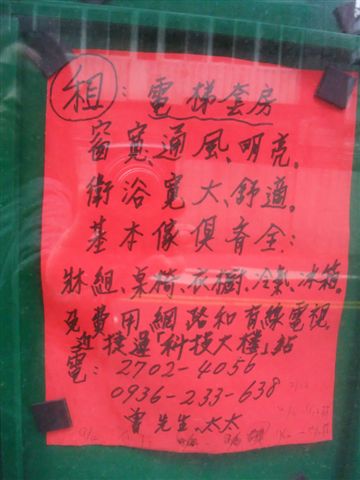 租:電梯套房
窗寬、通風、明亮。
衛浴寬大、舒適。
基本傢俱齊全:
牀組、桌椅、衣櫥、冷氣、冰箱。
免費用網路和有線電視
近捷運「科技大樓」站
電:2702-4056
0936-233-638
曾先生、太太